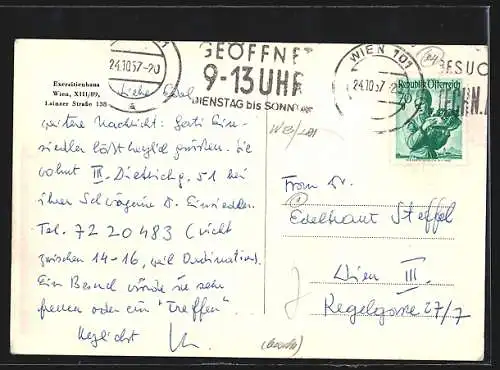 Exerzitienhaus
Wien, XIII/89,
Lainzer Straße 138
24.10.57-20
a
GEÖFFNET
9-13 UHR
DIENSTAG bis SONN
WIEN 101
24.10.57-2
BESUC
Republik Österreich
Liebe
weitere Nachricht: Gerti Ein-
siedler läßt herzlich grüßen. Sie
wohnt III. Dietrichg. 51 bei
ihrer Schwägerin D. Einsiedler.
Tel. 72 20 483 (nicht
zwischen 14-16, weil Ordination).
Ein Besuch würde sie sehr
freuen oder ein "Treffen"
Herzlichst
Frau Dr.
Edeltraut Steffel
Wien III.
Kegelgasse 27/7